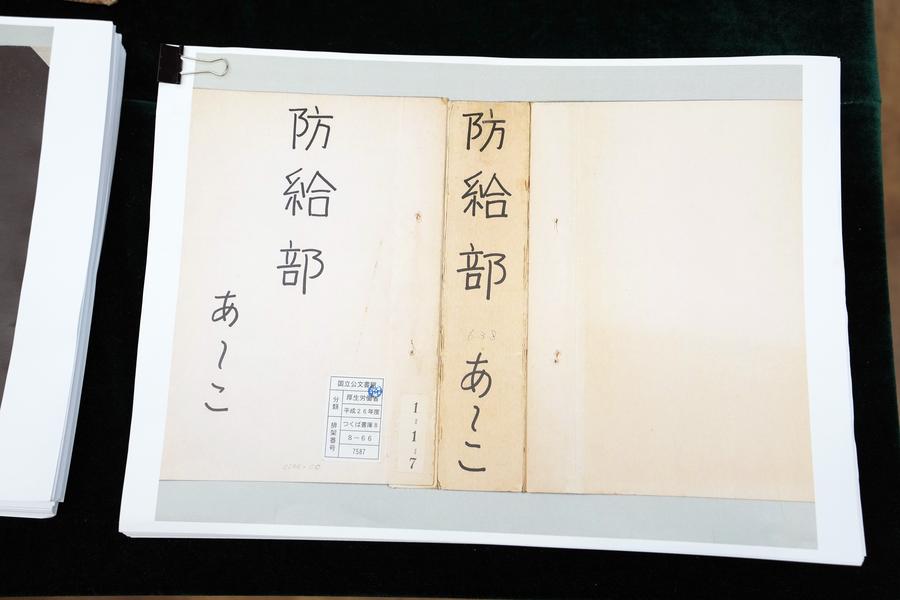 防給部
あ〜こ
国立公文書館
分類
厚生労働省
平成26年度
排架番号
つくば書庫8
8-66
7587
1:1:7
防給部
638
あ〜こ